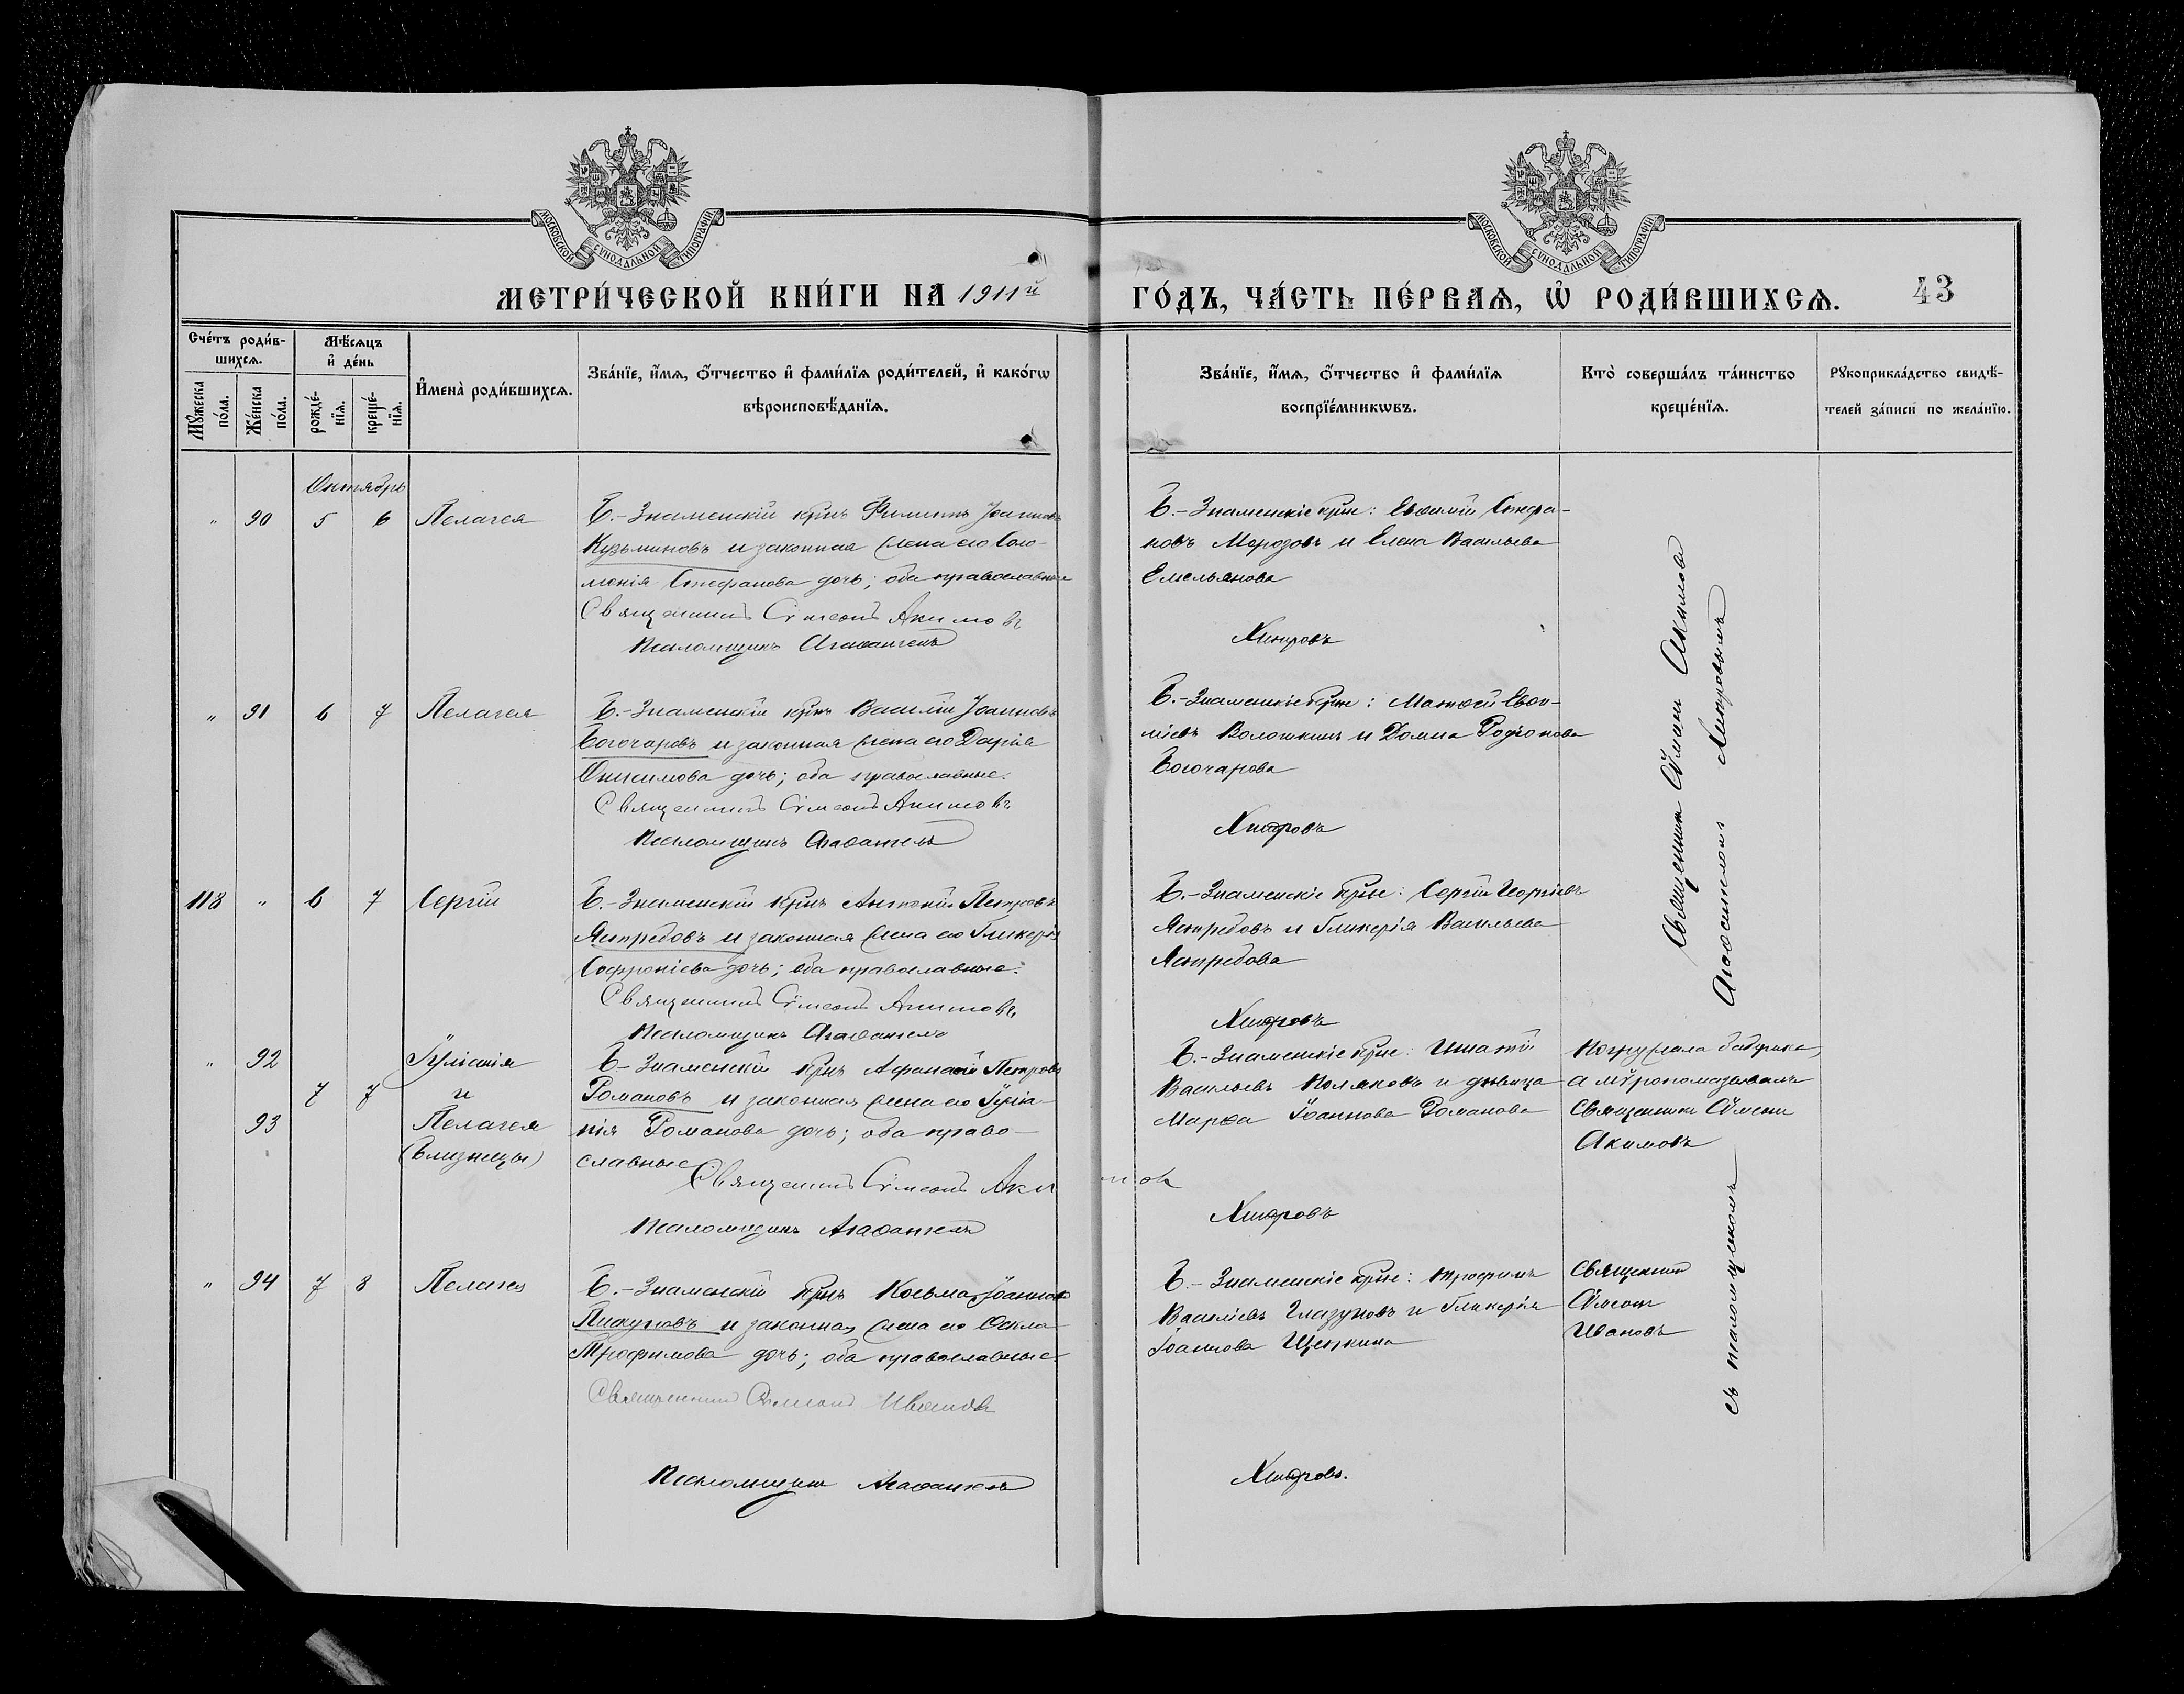 МОСКОВСКОЙ СУНОДАЛЬНОЙ ТИПОГРАФІИ
МОСКОВСКОЙ СУНОДАЛЬНОЙ ТИПОГРАФІИ
МЕТРИ́ЧЕСКОЙ КНИ́ГИ НА 1911й ГО́ДЪ, ЧА́СТЬ ПЕ́РВАѦ, Ѡ РОДИ́ВШИХСѦ. 43
Сче́тъ роди́в-
шихсѧ.
Мꙋ́жеска по́ла.
Же́нска по́ла.
Мѣ́сѧцъ
и҆ де́нь
рожде́-
нїѧ.
креще́-
нїѧ.
И҆мена̀ роди́вшихсѧ.
Зва́нїе, и҆́мѧ, ѻ҆́тчество и҆ фами́лїѧ роди́телей, и҆ како́гѡ
вѣроисповѣ́данїѧ.
Зва́нїе, и҆́мѧ, ѻ҆́тчество и҆ фами́лїѧ
воспрїе́мникѡвъ.
Кто̀ соверша́лъ та́инство
креще́нїѧ.
Рꙋкоприкла́дство свидѣ́-
телей за́писи по жела́нїю.
Октябрь
" 90 5 6 Пелагея
Б.-Знаменскій крнъ Филиппъ Іоанновъ
Кузьминовъ и законная жена его Соло-
монія Стефанова дочь; оба православные
Священникъ Сѵмеонъ Акимовъ
Псаломщикъ Агаѳангелъ
Б.-Знаменскіе крне: Евѳимій Стефа-
новъ Морозовъ и Елена Васильева
Емельянова
Хитровъ
" 91 6 7 Пелагея
Б.-Знаменскій крнъ Василій Іоанновъ
Богочаровъ и законная жена его Дарія
Онисимова дочь; оба православные.
Священникъ Сѵмеонъ Акимовъ
Псаломщикъ Агаѳангелъ
Б.-Знаменскіе крне: Матѳей Евѳи-
міевъ Волошкинъ и Домна Родіонова
Богочарова
Хитровъ
118 " 6 7 Сергій
Б.-Знаменскій крнъ Антоній Петровъ
Ястребовъ и законная жена его Гликерія
Софроніева дочь; оба православные.
Священникъ Сѵмеонъ Акимовъ
Псаломщикъ Агаѳангелъ
Б.-Знаменскіе крне: Сергій Георгіевъ
Ястребовъ и Гликерія Васильева
Ястребова
Хитровъ
Священникъ Сѵмеонъ Акимовъ
съ псаломщикомъ Агаѳангеломъ Хитровымъ
" 92 Іуліанія
7 7 и
93 Пелагея
(близнецы)
Б.-Знаменскій крнъ Афанасій Петровъ
Романовъ и законная жена его Іуліа-
нія Романова дочь; оба право-
славные
Священникъ Сѵмеонъ Акимов
Псаломщикъ Агаѳангелъ
Б.-Знаменскіе крне: Игнатій
Васильевъ Поляковъ и дѣвица
Марѳа Іоаннова Романова
Хитровъ
Погружала бабушка,
а мѵропомазывалъ
Священникъ Сѵмеонъ
Акимовъ
" 94 7 8 Пелагея
Б.-Знаменскій крнъ Косьма Іоанновъ
Пикуновъ и законная жена его Ѳекла
Трофимова дочь; оба православные.
Священникъ Сѵмеонъ Ивановъ
Псаломщикъ Агаѳангелъ
Б.-Знаменскіе крне: Трофимъ
Васильевъ Глазуновъ и Гликерія
Іоаннова Щепкина
Хитровъ.
Священникъ
Сѵмеонъ
Ивановъ